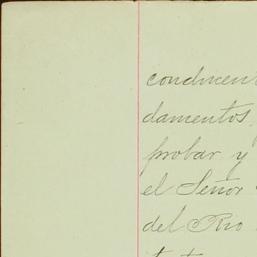 conducen
damentos,
probar y
el Señor
del Rio